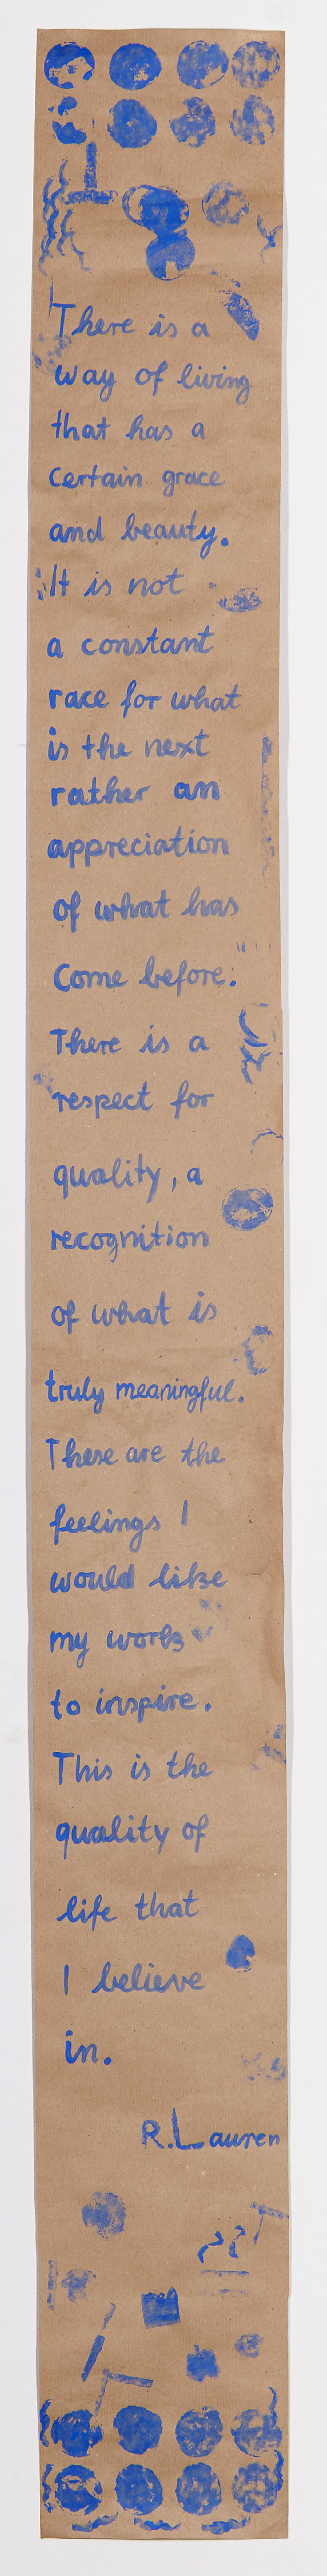 There is a
way of living
that has a
certain grace
and beauty.
It is not
a constant
race for what
is the next
rather an
appreciation
of what has
come before.
There is a
respect for
quality, a
recognition
of what is
truly meaningful.
These are the
feelings I
would like
my work
to inspire.
This is the
quality of
life that
I believe
in.
R. Lauren